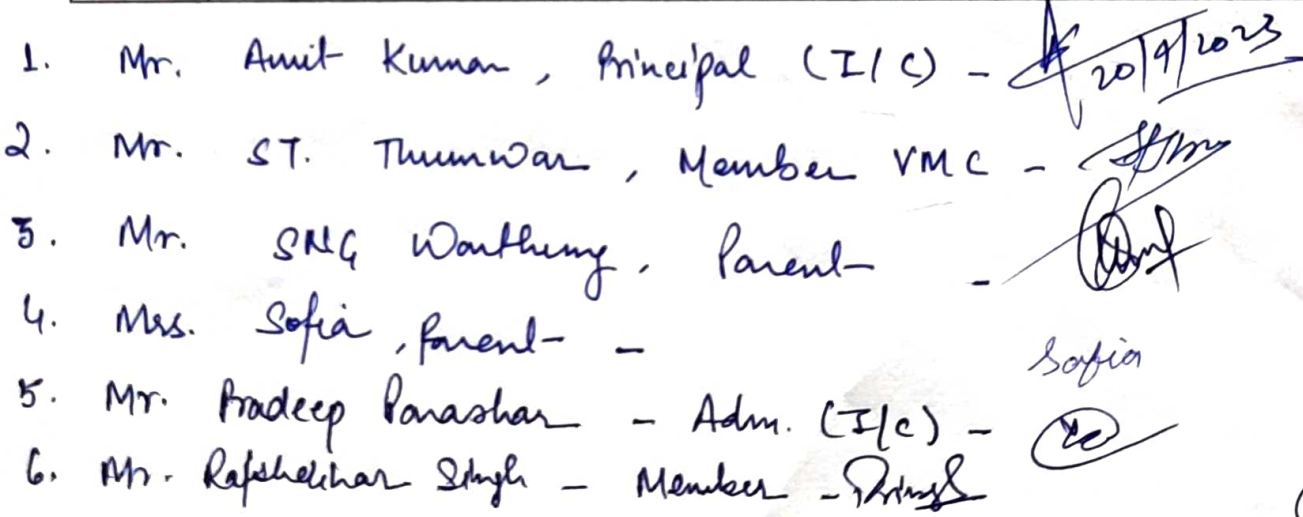 1. Mr. Amit Kumar, Principal (I/C) - 20/9/2023
2. Mr. ST. Thumwar, Member VMC -
3. Mr. SNG Warthemg, Parent -
4. Mrs. Sofia, Parent - Sofia
5. Mr. Pradeep Parashar - Adm. (I/c) -
6. Mr. Rajshekhar Singh - Member -